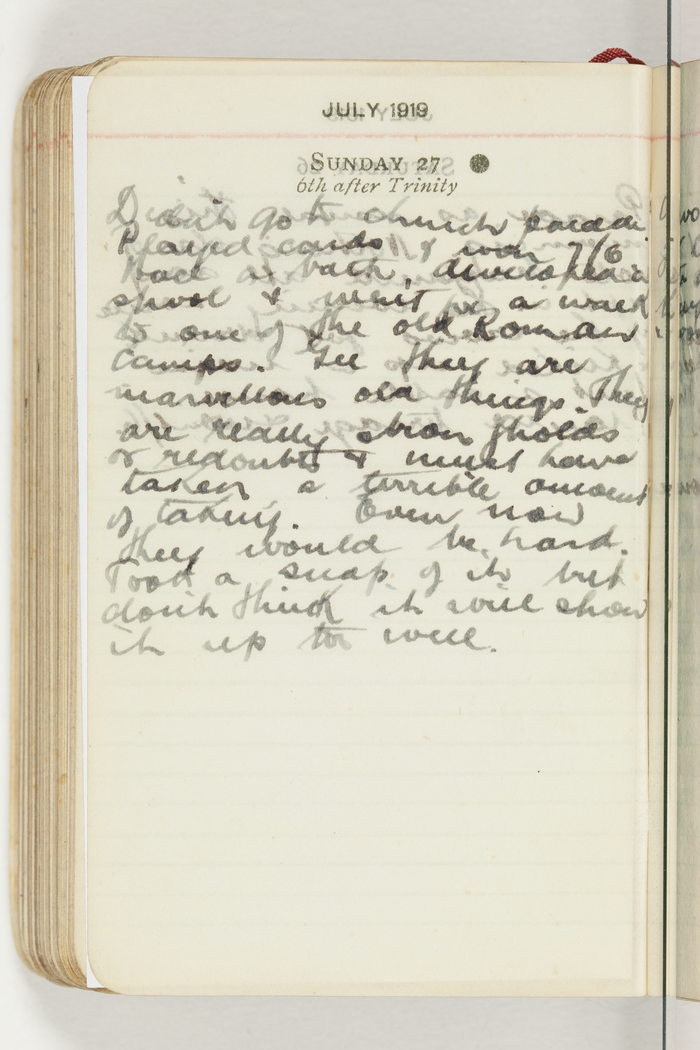 JULY 1919
SUNDAY 27
6th after Trinity
Didn't go to church parade
Played cards & won 7/6.
Had a bath, developed a
spool & went for a walk
to one of the old Roman
Camps. Gee they are
marvellous old things. They
are really strongholds
or redoubts & must have
taken a terrible amount
of taking. Even now
they would be hard.
Took a snap of it but
don't think it will show
it up too well.